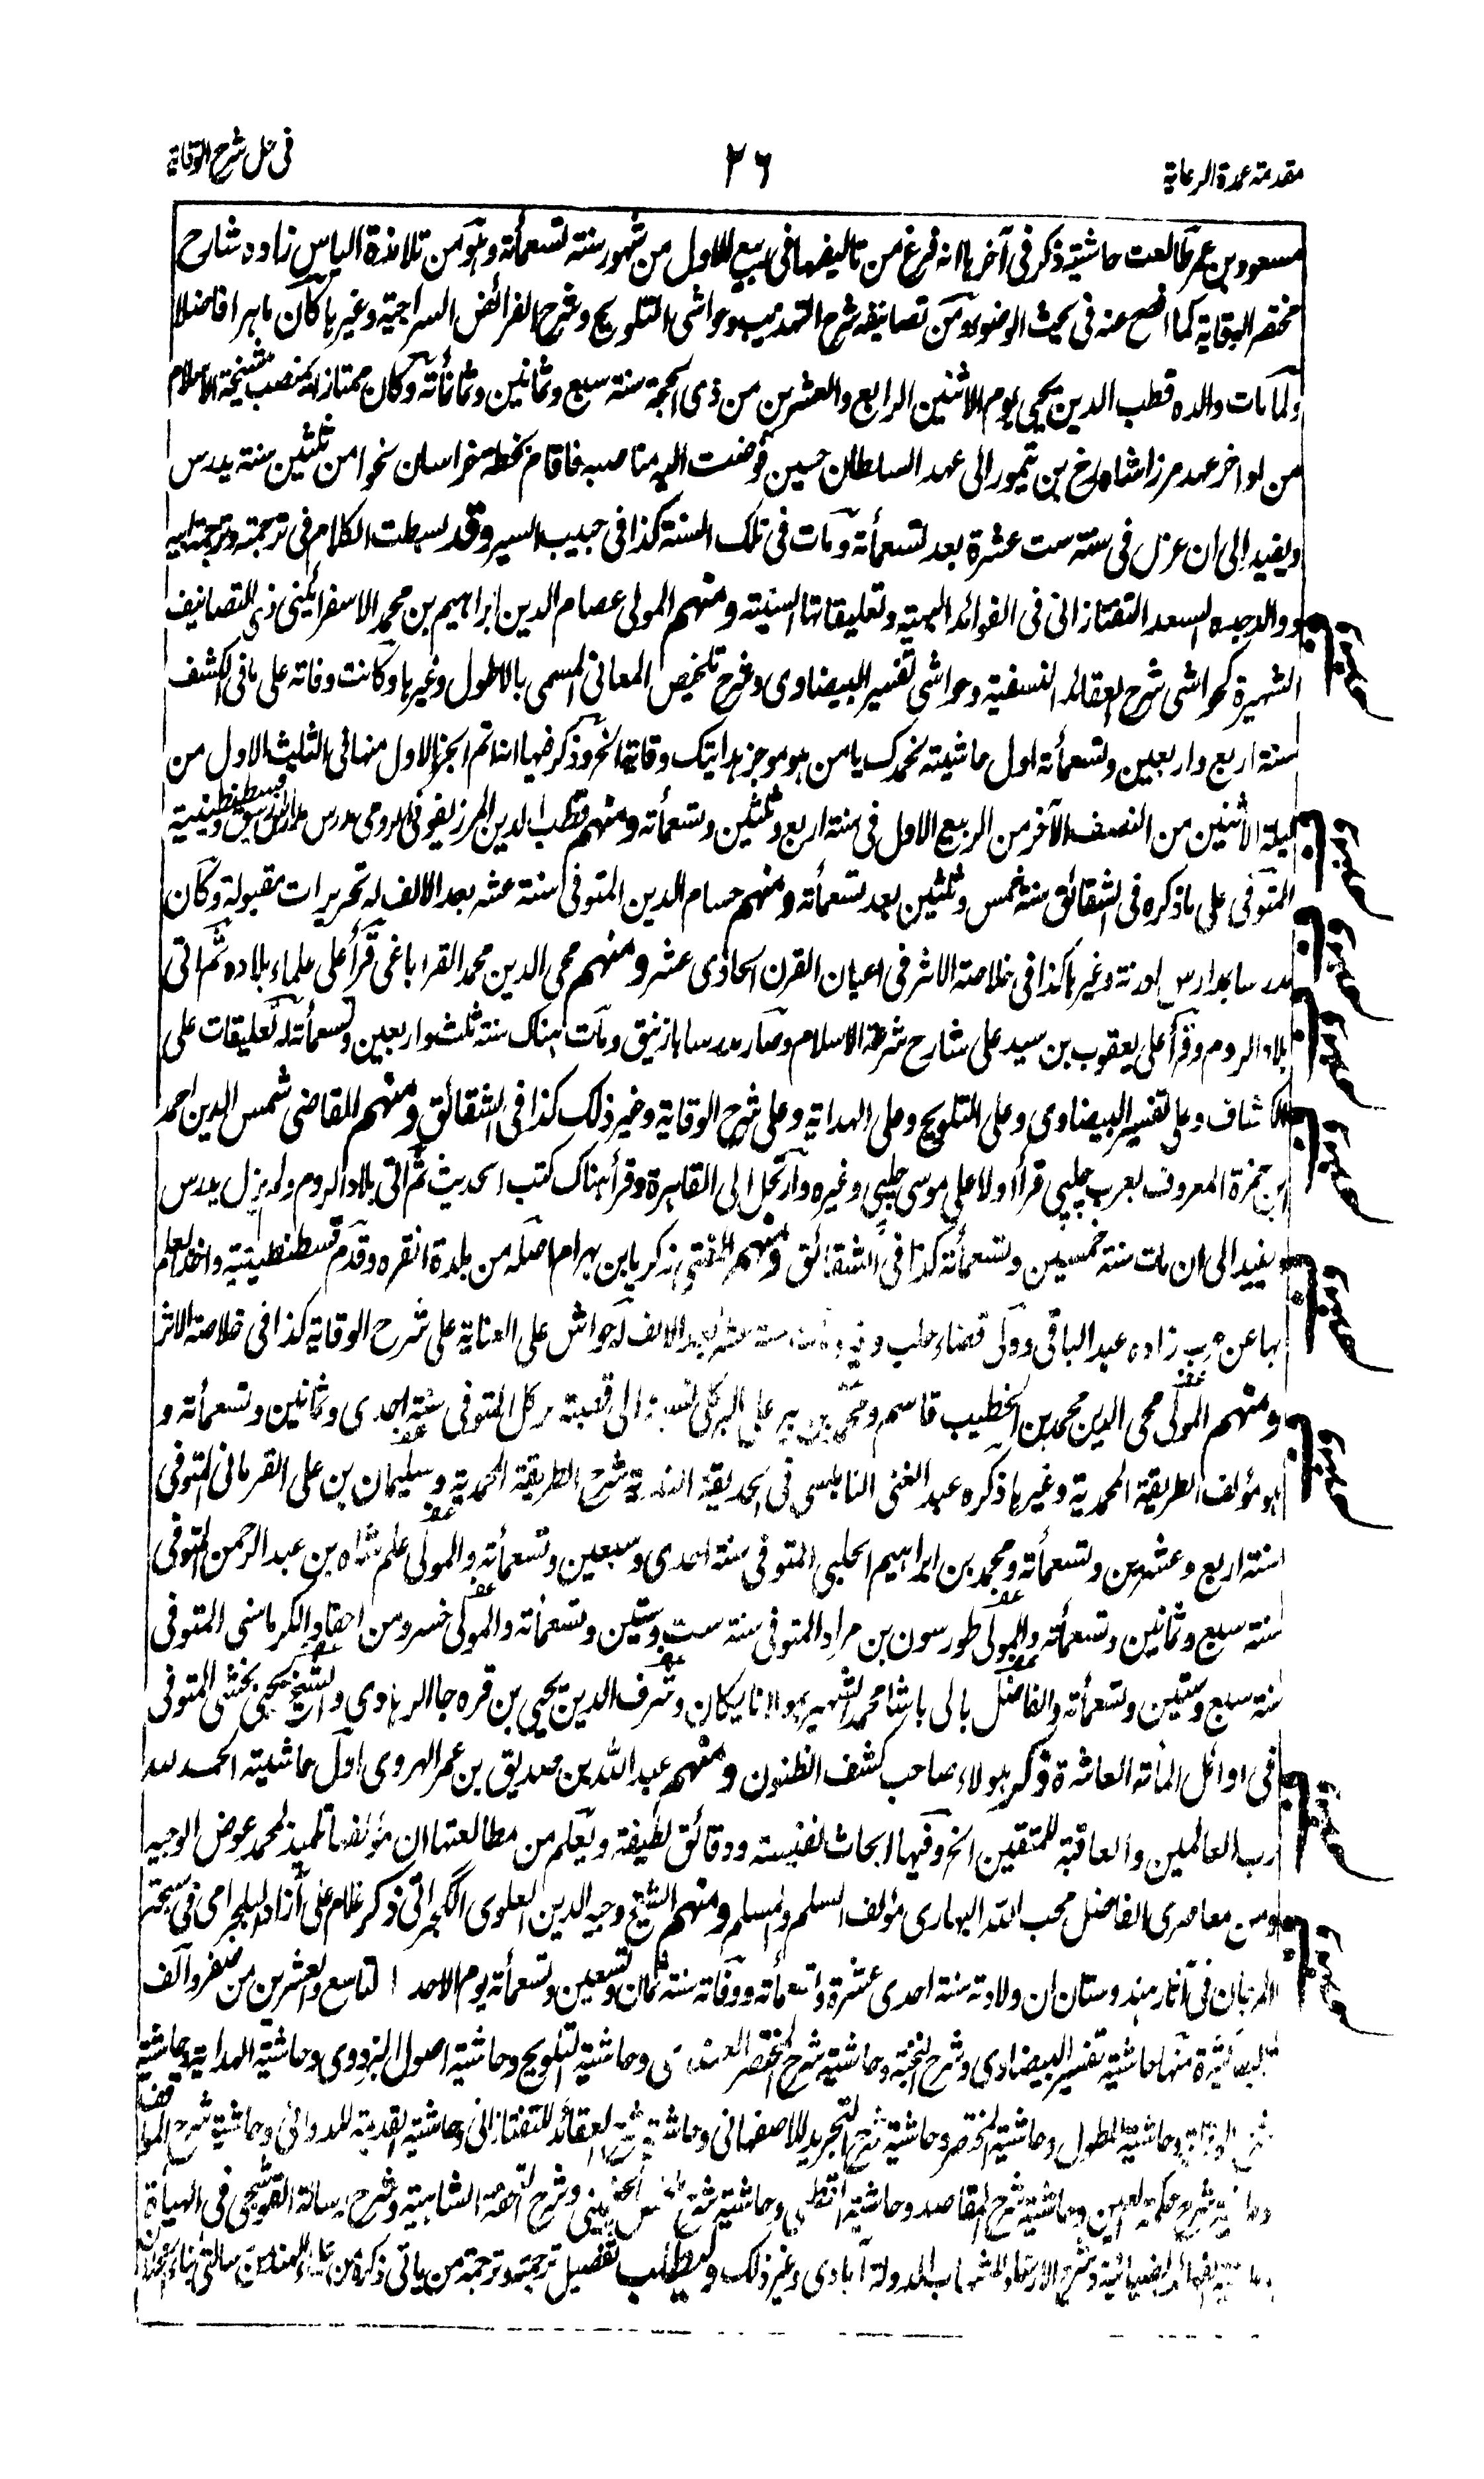 مقدمة عمدة الرعاية
٢٦
فى حل شرح الوقاية
مسعود بن عمر طالعت حاشيته ذكر فى آخرها انه فرغ من تاليفها فى ربيع الاول من شهور سنة تسعمأته وهو من تلامذة الياس زاده شارح
مختصر الوقاية كما افصح عنه فى بحث الوضوء ومن تصانيفه شرح التهذيب وحواشى التلويح وشرح الفرائض السراجية وغيرها كان ماهرا فاضلا
ولما مات والده قطب الدين يحيى يوم الاثنين الرابع والعشرين من ذى الحجة سنة سبع وثمانين وثمانمأته وكان ممتازا له بمنصب مشيخة الاسلام
من اواخر عهد مرزا شاهرخ بن تيمور الى عهد السلطان حسين فوضت اليه مناصبه فاقام بخطة خراسان نحوا من ثلثين سنة يدرس
ويفيد الى ان عزل فى سنة ست عشرة بعد تسعمأته ومات فى تلك السنة كذا فى حبيب السير وقد بسطت الكلام فى ترجمته وترجمة ابيه
ووالد جده السعد التفتازانى فى الفوائد البهية وتعليقاتها السنية ومنهم المولى عصام الدين ابراهيم بن محمد الاسفرائينى ذى التصانيف
الشهيرة كحواشى شرح العقائد النسفية وحواشى تفسير البيضاوى وشرح تلخيص المعانى المسمى بالاطول وغيرها وكانت وفاته على ما فى الكشف
سنة اربع واربعين وتسعمأته اول حاشيته نحمدك يا من هو موجز هدايتك وقاية الخ وذكر فيها انه اتم الجزء الاول منها فى الثلث الاول من
ليلة الاثنين من النصف الآخر من الربيع الاول فى سنة اربع وثلثين وتسعمأته ومنهم قطب الدين المرزيفونى الرومى مدرس مدارس قسطنطينية
المتوفى على ما ذكره فى الشقائق سنة خمس وثلثين بعد تسعمأته ومنهم حسام الدين المتوفى سنة عشر بعد الالف له تحريرات مقبولة وكان
مدرسا بمدارس ادرنة وغيرها كذا فى خلاصة الاثر فى اعيان القرن الحادى عشر ومنهم محى الدين محمد القراباغى قرأ على علماء بلاده ثم اتى
بلاد الروم وقرأ على يعقوب بن سيد على شارح شرعة الاسلام وصار مدرسا بازنيق ومات هناك سنة ثلث واربعين وتسعمأته له تعليقات على
الكشاف وعلى تفسير البيضاوى وعلى التلويح وعلى الهداية وعلى شرح الوقاية وغير ذلك كذا فى الشقائق ومنهم القاضى شمس الدين احمد
بن حمزة المعروف بعرب چلپى قرأ اولا على موسى چلپى وغيره وارتحل الى القاهرة وقرأ هناك كتب الحديث ثم اتى بلاد الروم ولم يزل يدرس
ويفيد الى ان مات سنة خمسين وتسعمأته كذا فى الشقائق ومنهم المفتى زكريا بن بهرام اصله من بلدة انقره وقدم قسطنطينية واخذ العلم
بها عن عرب زاده عبد الباقى وولى قضاء حلب وغيره سنة عشر بعد الالف له حواش على العناية على شرح الوقاية كذا فى خلاصة الاثر
ومنهم المولى محى الدين محمد بن الخطيب قاسم ومحمد بن پير على البركلى نسبة الى قصبة بركل المتوفى سنة احدى وثمانين وتسعمأته و
هو مؤلف الطريقة المحمدية وغيرها ذكره عبد الغنى النابلسى فى الحديقة الندية شرح الطريقة المحمدية وسليمان بن على القرمانى المتوفى
سنة اربع وعشرين وتسعمأته ومحمد بن ابراهيم الحلبى المتوفى سنة احدى وسبعين وتسعمأته والمولى علم شاه بن عبد الرحمن المتوفى
سنة سبع وثمانين وتسعمأته والمولى طورسون بن مراد المتوفى سنة ست وستين وتسعمأته والمولى خسرو من احفاد الكرماسنى المتوفى
سنة سبع وستين وتسعمأته والفاضل بالى باشا محمد الشهير بمولانا يكان وشرف الدين يحيى بن قره جا الرهاوى والشيخ يحيى بخشى المتوفى
فى اوائل المأته العاشرة ذكر هولاء صاحب كشف الظنون ومنهم عبد الله بن صديق بن عمر الهروى اول حاشيته الحمد لله
رب العالمين والعاقبة للمتقين الخ وفيها ابحاث نفيسة ودقائق لطيفة ويعلم من مطالعتها ان مؤلفها تلميذ لمحمد عوض الوجيه
ومن معاصرى الفاضل محب الله البهارى مؤلف السلم والمسلم ومنهم الشيخ وجيه الدين العلوى الگجراتى ذكر غلام على آزاد البلجرامى فى سبحة
المرجان فى آثار هندوستان ان ولادته سنة احدى عشرة وتسعمأته ووفاته سنة ثمان وتسعين وتسعمأته يوم الاحد التاسع والعشرين من صفر والف
كثيرة منها حاشية تفسير البيضاوى وشرح النخبة وحاشية شرح المختصر العضدى وحاشية التلويح وحاشية اصول البزدوى وحاشية الهداية وحاشية
شرح الوقاية وحاشية المطول وحاشية المختصر وحاشية شرح التجريد للاصفهانى وحاشية شرح العقائد للتفتازانى وحاشية القديمة للدوانى وحاشية شرح المواقف
وحاشية شرح حكمة العين وحاشية شرح المقاصد وحاشية القطبى وحاشية شرح الچغمينى وشرح التحفة الشاهية وشرح رسالة القوشجى فى الهيأة
وحاشية الفوائد الضيائية وشرح الارشاد للشهاب الدولة آبادى وغير ذلك وليطلب تفصيل ترجمته وترجمة من ياتى ذكره من علماء الهند من رسالتى